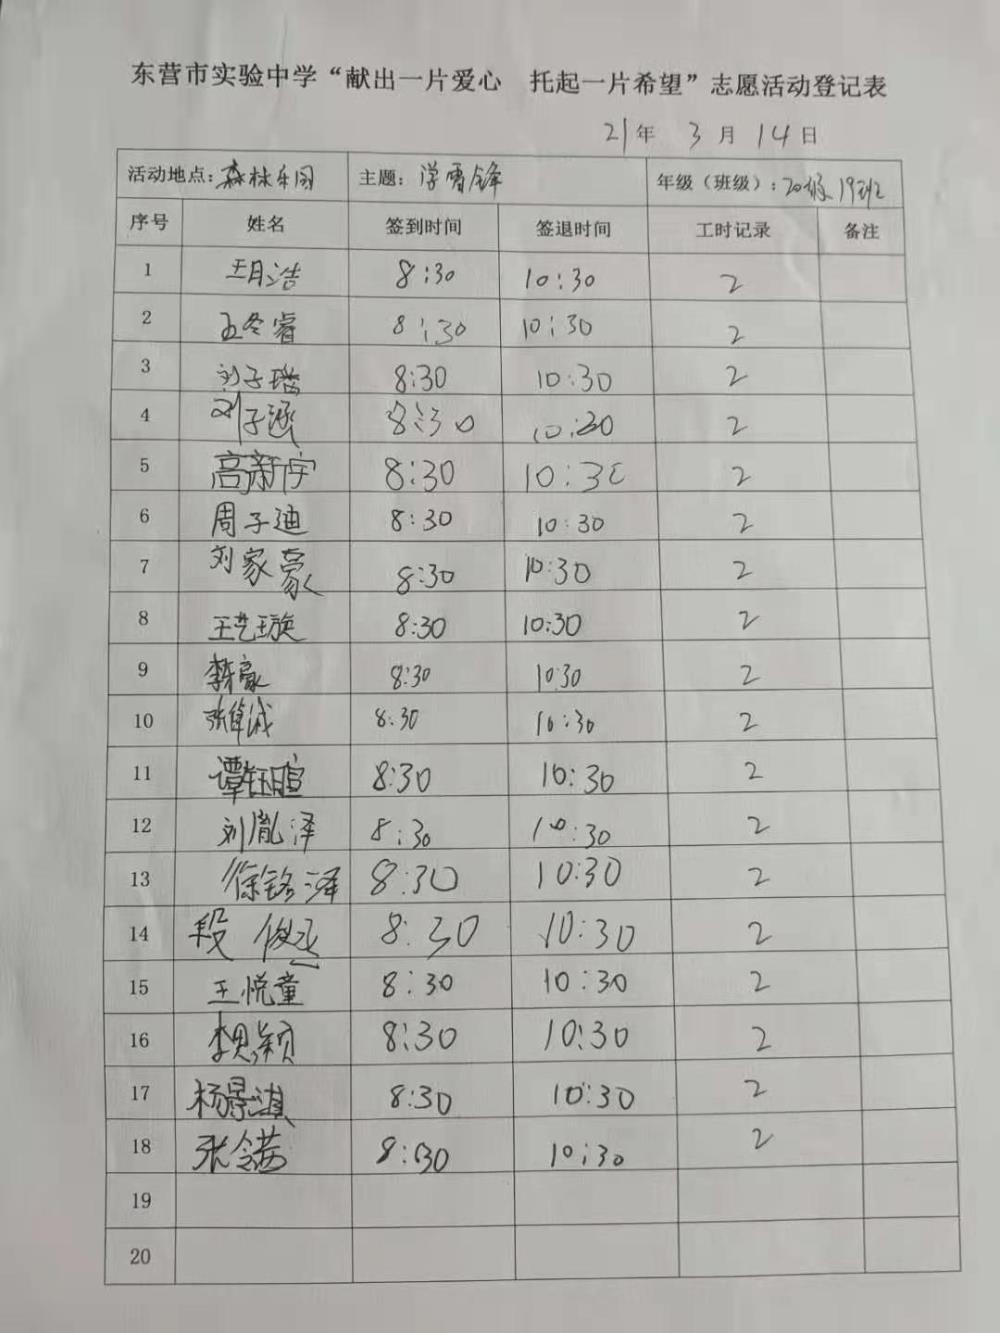 东营市实验中学“献出一片爱心 托起一片希望”志愿活动登记表
21年 3月 14日
活动地点：森林乐园 主题：学雷锋 年级（班级）：20级19班
序号 姓名 签到时间 签退时间 工时记录 备注
1 王月浩 8:30 10:30 2
2 王冬睿 8:30 10:30 2
3 刘子瑞 8:30 10:30 2
4 刘子涵 8:30 10:30 2
5 高新宇 8:30 10:30 2
6 周子迪 8:30 10:30 2
7 刘家豪 8:30 10:30 2
8 王艺璇 8:30 10:30 2
9 8:30 10:30 2
10 张倬诚 8:30 10:30 2
11 谭钰暄 8:30 10:30 2
12 刘胤泽 8:30 10:30 2
13 徐铭泽 8:30 10:30 2
14 段俊丞 8:30 10:30 2
15 王悦童 8:30 10:30 2
16 李思颖 8:30 10:30 2
17 杨景淇 8:30 10:30 2
18 8:30 10:30 2
19
20